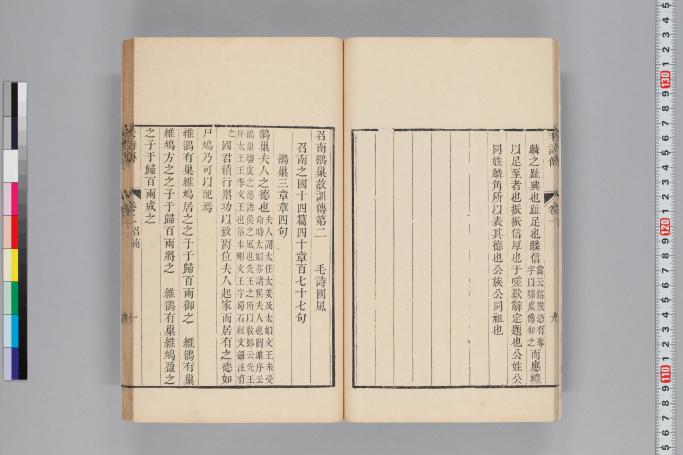 麟之趾興也趾足也麟信而應禮
以足至者也振振信厚也于嗟歎辭定題也公姓公
同姓麟角所以表其德也公族公同祖也
召南鵲巢故訓傳第二 毛詩國風
召南之國十四篇四十章百七十七句
鵲巢三章章四句
鵲巢夫人之德也
國君積行累功以致爵位夫人起家而居有之德如
尸鳩乃可以配焉
維鵲有巢維鳩居之之子于歸百兩御之 維鵲有巢
維鳩方之之子于歸百兩將之 維鵲有巢維鳩盈之
之子于歸百兩成之